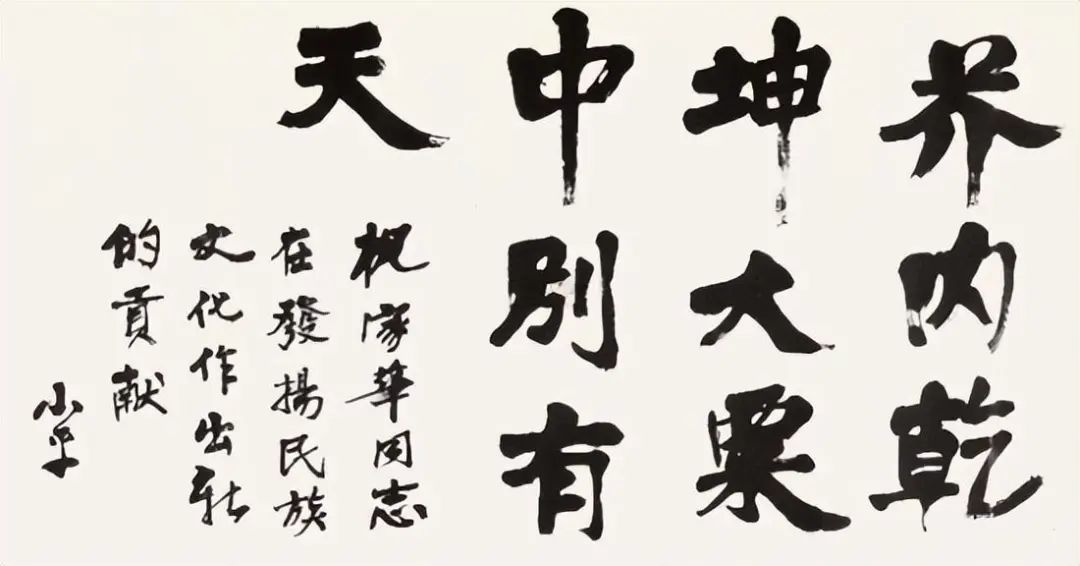 芥内乾
坤大粟
中别有
天
祝家華同志
在發揚民族
文化作出新
的貢献
小平